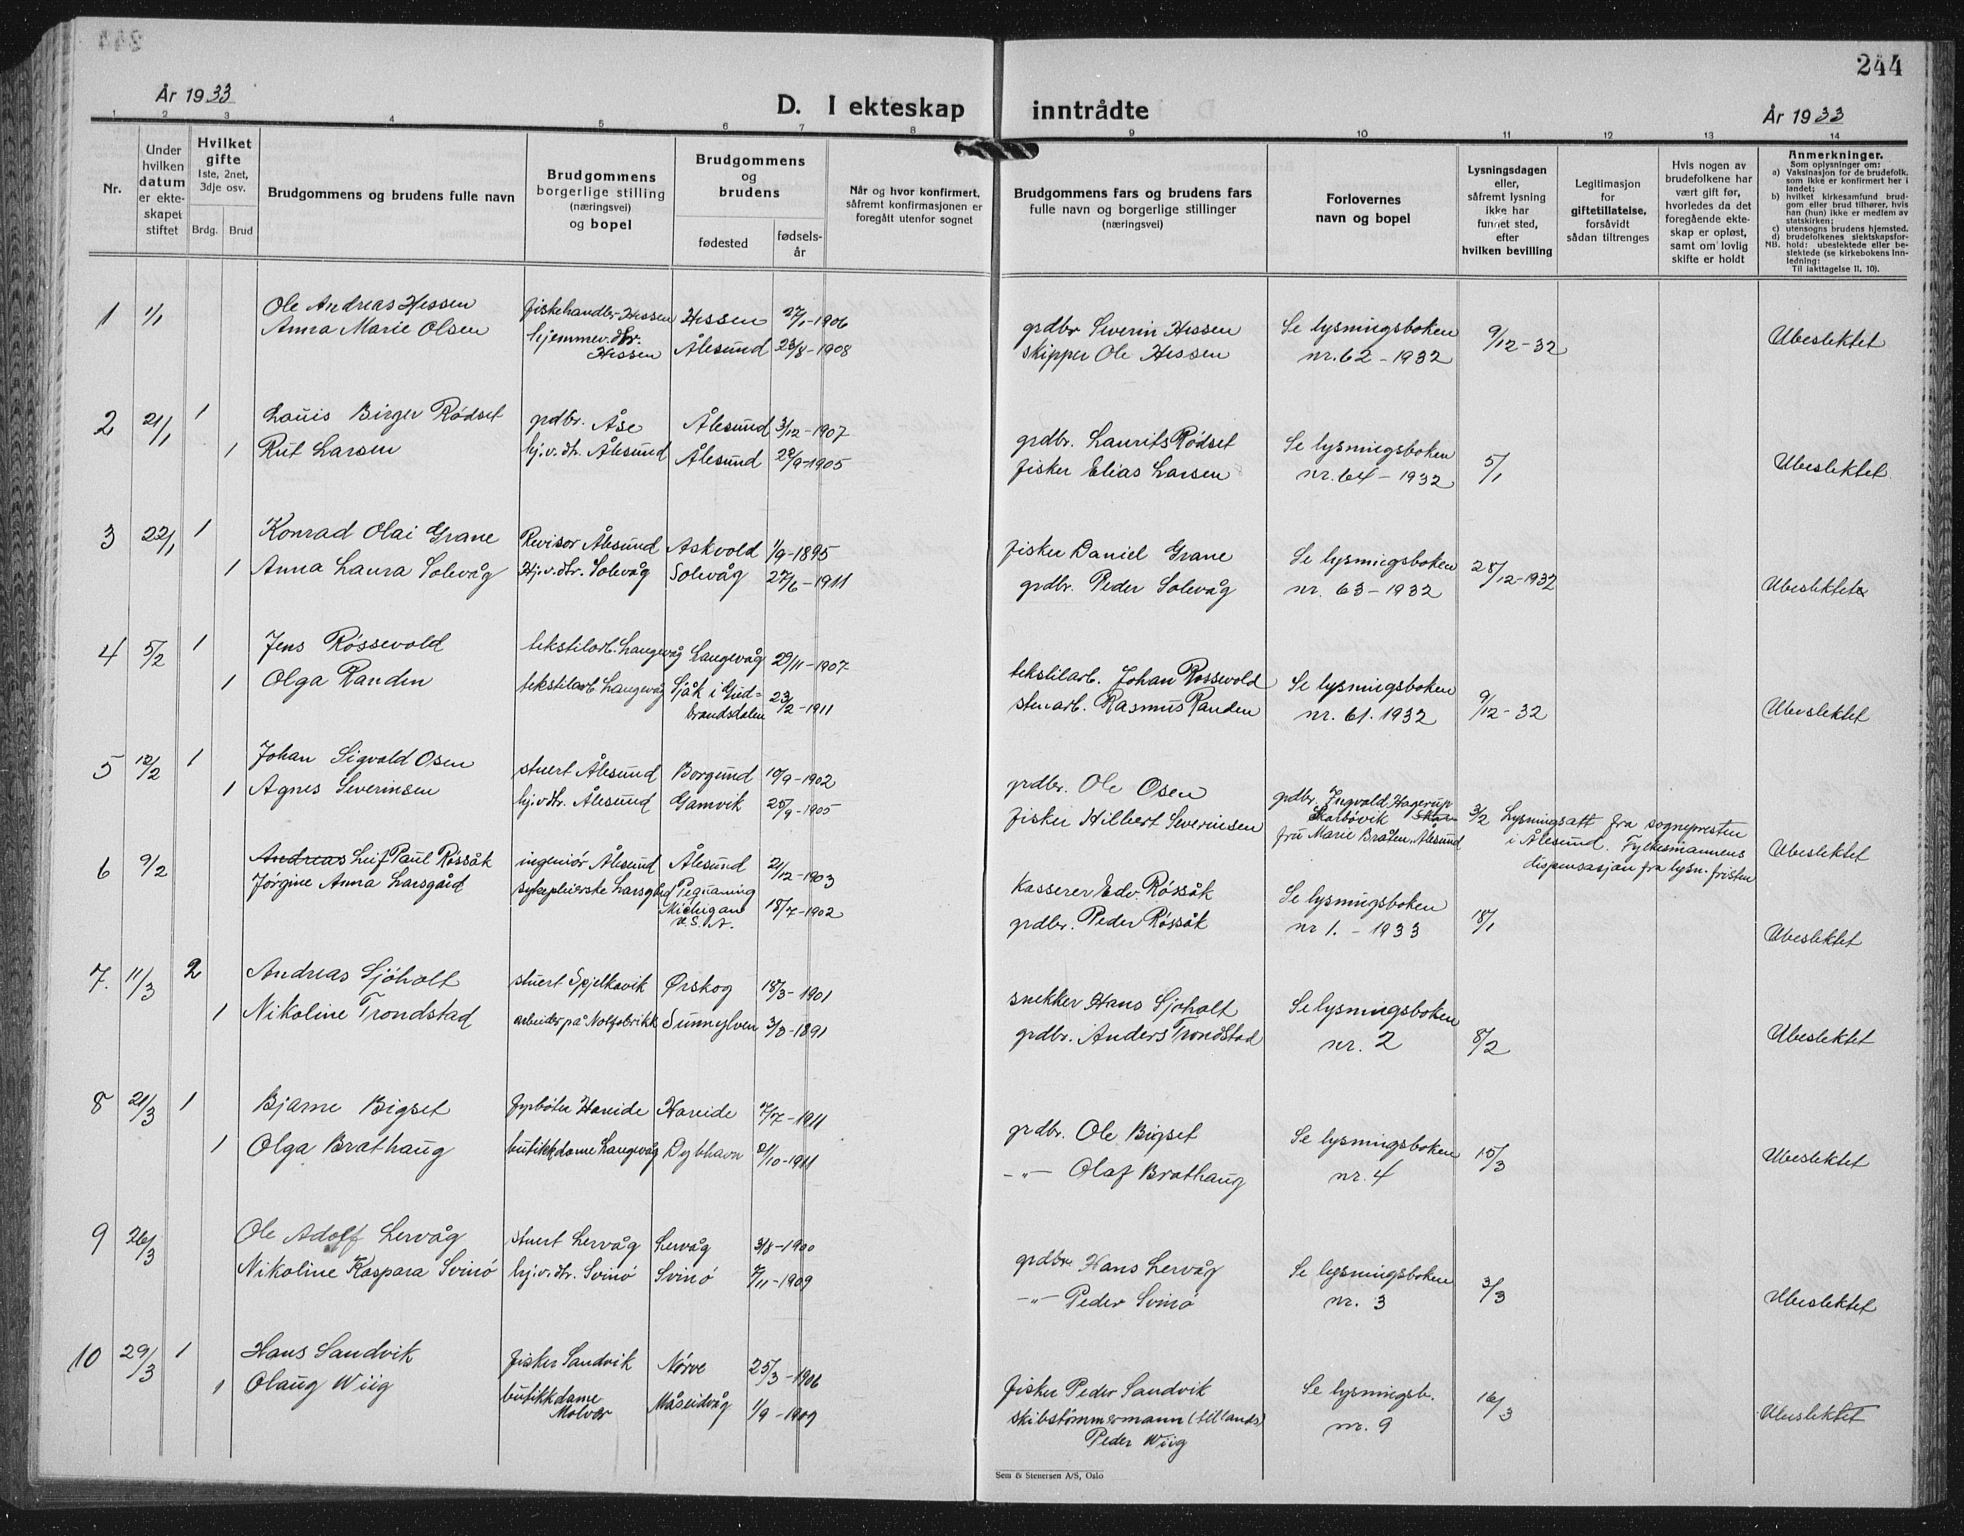 244
År 1933
D. I ekteskap inntrådte
År 1933
1 2 3 4 5 6 7 8 9 10 11 12 13 14
Nr.
Under hvilken datum er ekteskapet stiftet
Hvilket gifte
1ste, 2net, 3dje osv.
Brdg. Brud
Brudgommens og brudens fulle navn
Brudgommens borgerlige stilling (næringsvei) og bopel
Brudgommens og brudens
fødested
fødselsår
Når og hvor konfirmert, såfremt konfirmasjonen er foregått utenfor sognet
Brudgommens fars og brudens fars fulle navn og borgerlige stillinger (næringsvei)
Forlovernes navn og bopel
Lysningsdagen eller, såfremt lysning ikke har funnet sted, efter hvilken bevilling
Legitimasjon for giftetillatelse, forsåvidt sådan tiltrenges
Hvis nogen av brudefolkene har vært gift før, hvorledes da det foregående ekteskap er opløst, samt om lovlig skifte er holdt
Anmerkninger.
Som oplysninger om:
a) Vaksinasjon for de brudefolk. som ikke er konfirmert her i landet;
b) hvilket kirkesamfund brudgom eller brud tilhører, hvis han (hun) ikke er medlem av statskirken;
c) utensogns brudens hjemsted.
d) brudefolkenes slektskapsforhold: ubeslektede eller beslektede (se kirkebokens innledning:
NB.
Til iakttagelse II, 10).
1 1/1 Ole Andreas Hessen fiskehandler Hessen Hessen 27/1-1906 grdbr Severin Hessen Se lysningsboken 9/12-32 Ubeslektet
Anna Marie Olsen hjemmev. dtr. Hessen Ålesund 23/8-1908 skipper Ole Hessen nr. 62 - 1932
2 21/1 1 Lauis Birger Rødset grdbr. Åse Ålesund 3/12-1907 grdbr. Laurits Rødset Se lysningsboken 5/1 Ubeslektet
1 Rut Larsen hj.v.dtr. Ålesund Ålesund 28/9-1905 fisker Elias Larsen nr. 64 - 1932
3 22/1 1 Konrad Olai Grane Revisor Ålesund Askvold 1/9-1895 fisker Daniel Grane Se lysningsboken 28/12-1932 Ubeslektet
1 Anna Laura Solevåg Hj.v.dtr. Solevåg Solevåg 27/6-1911 grdbr. Peder Solevåg nr. 63 - 1932
4 5/2 1 Jens Røssevold tekstilarb. Langevåg Langevåg 29/11-1907 tekstilarb. Johan Røssevold Se lysningsboken 9/12-32 Ubeslektet
1 Olga Randen tekstilarb Langevåg Sjåk i Gudbrandsdalen 23/2-1911 stenarb. Rasmus Randen nr. 61. 1932
5 12/2 1 Johan Sigvald Osen stuert Ålesund Borgund 10/9-1902 grdbr. Ole Osen grdbr. Ingvald Hagerup Skatbøvik 3/2 Lysningsatt fra sognepresten i Ålesund. Fylkesmannens dispensasjon fra lysn. fristen Ubeslektet
1 Agnes Severinsen hj.v.dtr. Ålesund Gamvik 25/9-1905 fisker Hilbert Severinsen fru Marie Bråten, Ålesund
6 9/2 Andreas Leif Paul Røssåk ingeniør Ålesund Ålesund 21/12-1903 Kasserer Edv. Røssåk Se lysningsboken 18/1 Ubeslektet
Jørgine Anna Larsgård sykepleierske Michigan U.S.A. 18/7-1902 grdbr. Peder Røssåk nr 1. - 1933
7. 11/3 2 Andreas Sjøholt stuert Spjelkavik Ørskog 18/3-1901 snekker Hans Sjøholt Se lysningsboken 8/2 Ubeslektet
1 Nikoline Trondstad arbeider på Sunnylven 3/8-1891 grdbr. Anders Trondstad nr. 2
8 21/3 1 Bjarne Bigset fyrbøter Hareide Hareide 7/7-1911 grdbr. Ole Bigset Se lysningsboken 15/3 Ubeslektet
1 Olga Brathaug butikkdame Langevåg Dybhavn /10-1911 -"- Olaf Brathaug nr. 4
9 26/3 Ole Adolf Lervåg stuert Lervåg Lervåg 3/8-1900 grdbr Hans Lervåg Se lysningsboken 3/3 Ubeslektet
Nikoline Kaspara Svinø hj.v.dtr. Svinø Svinø /11-1909 -"- Peder Svinø nr. 3
10 29/3 1 Hans Sandvik fisker Sandvik Nørve 25/3-1906 fisker Peder Sandvik Se lysningsb. 16/3 Ubeslektet
1 Olaug Wiig butikkdame Molvær Måseidvåg 1/9-1909 skibstømmermann (tillands) Peder Wiig nr. 9
Sem & Stenersen A/S, Oslo